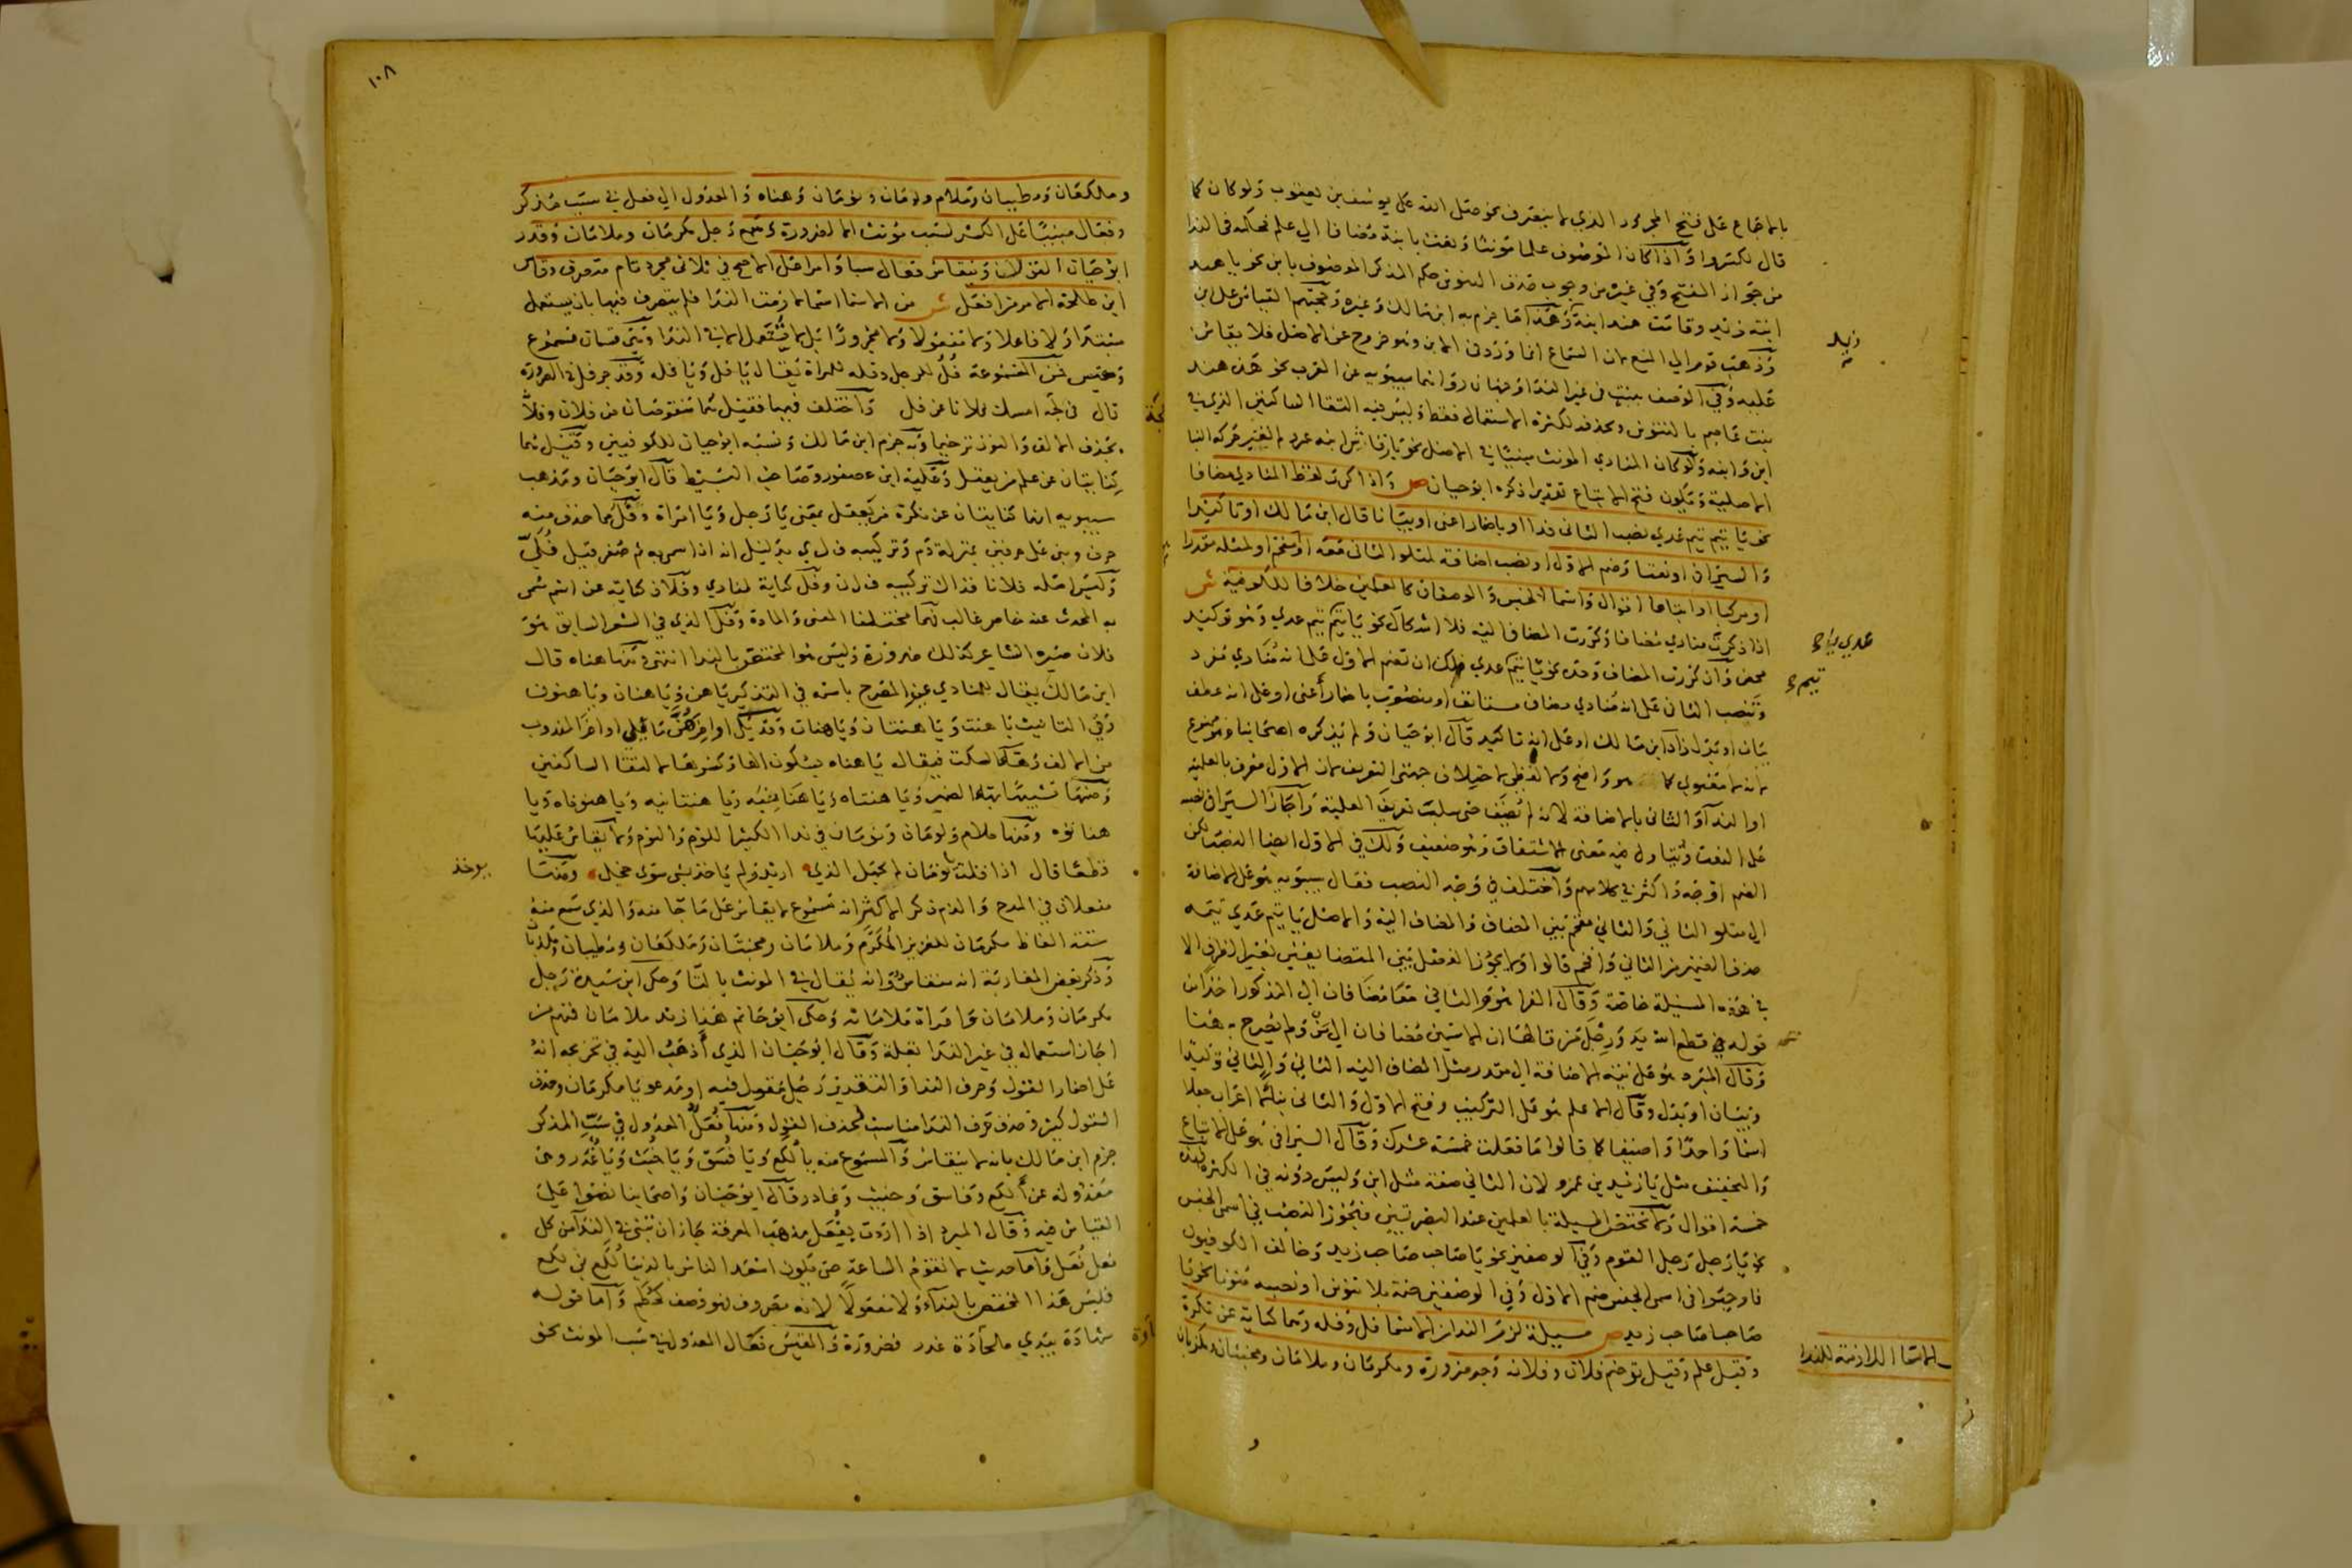 بالاجماع على فتح المجرور الذي لا ينصرف نحو صلى الله على يوسف بن يعقوب ولو كان كما
قال لكسروا واذا كان الموصوف علما مؤنثا ونعت بابنة مضافا الى علم فحكمه في الندا
من جواز الفتح وفي غيره من وجوب حذف التنوين حكم المذكر الموصوف بابن نحو يا هند
ابنة زيد وقامت هند ابنة زيد هذا ما جزم به ابن مالك وغيره وحجتهم القياس على ابن
وذهب قوم الى المنع لان السماع انما ورد في الابن وهو خروج عن الاصل فلا يقاس
عليه وفي الوصف ببنت في غير الندا وجهان رواهما سيبويه عن العرب نحو هذه هند
بنت عاصم بالتنوين وبحذفه لكثرة الاستعمال فقط وليس فيه التقا الساكنين الذي في
ابن وابنه ولو كان المنادى المونث مبنيا في الاصل نحو يا رقاش ابنة عمرو لم يغير حركة البنا
الاصلية وتكون فتح الاتباع تقديرا ذكره ابو حيان ص واذا كرر لفظ المنادى مضافا
نحو يا تيم تيم عدي نصب الثاني ندا او باضمار اعني او بيانا قال ابن مالك او تاكيدا
والسيرافي او نعتا وضم الاول او نصب اضافة لمتلو الثاني فمعه او مقحم او لمثله مقدرا
او مركبا او اتباعا اقوال واسما الجنس والوصفان كالعلمين خلافا للكوفية ش
اذا ذكرت منادى مضافا وكررت المضاف اليه فلا اشكال نحو يا تيم تيم عدي وهو توكيد
محض وان كررت المضاف وحده نحو يا تيم عدي فلك ان تضم الاول على انه منادى مفرد
وتنصب الثاني على انه منادى مضاف مستانف او منصوب باضمار أعني او على انه عطف
بيان او بدل زاد ابن مالك او على انه تاكيد قال ابو حيان ولم يذكره اصحابنا وهو ممنوع
لانه لا معنوي كما هو واضح ولا لفظي لاختلاف جهتي التعريف لان الاول معرف بالعلمية
او الندا والثاني بالاضافة لانه لم يضف حتى سلب تعريف العلمية واجاز السيرافي نصبه
على النعت وتناول فيه معنى الاشتقاق وهو ضعيف ولك في الاول ايضا النصب لكن
الضم اوجه واكثر في كلامهم واختلف في وجه النصب فقال سيبويه هو على الاضافة
الى متلو الثاني والثاني مقحم بين المضاف والمضاف اليه والاصل يا تيم عدي تيمه
حذف الضمير من الثاني واقحم قالوا ولا يجوز الفصل بين المتضايفين بغير الظرف الا
في هذه المسيلة خاصة وقال الفرا هو والثاني معا مضافان الى المذكور اخذا من
قوله في قطع الله يد ورجل من قالها ان الاسمين مضافان الى من ولم يصرح به هنا
وقال المبرد هو على نية الاضافة الى مقدر مثل المضاف اليه الثاني والثاني توكيد
وبيان او بدل وقال الاعلم هو على التركيب وفتح الاول والثاني بنا لا اعراب جعلا
اسما واحدا واضيفا كما قالوا ما فعلت خمسة عشرك وقال السيرافي هو على الاتباع
والتخفيف مثل يا زيد بن عمرو لان الثاني صفة مثل ابن وليس دونه في الكثرة فهذه
خمسة اقوال ولا تختص المسيلة بالعلمين عند البصريين فيجوز النصب في اسمي الجنس
نحو يا رجل رجل القوم وفي الوصفين نحو يا صاحب صاحب زيد وخالف الكوفيون
فاوجبوا في اسمي الجنس ضم الاول وفي الوصفين ضمه بلا تنوين او نصبه منونا نحو يا
صاحبا صاحب زيد ص مسيلة لزم الندا من الاسما فل وفلة وهما كناية عن نكرة
وقيل علم وقيل ترخيم فلان وفلانة وجر ضرورة ومكرمان وملامان ومخبثان
زيد
عدي يباح
تيم
الاسما اللازمة للندا
١٠٨
وملكعان ومطيبان وملام ولومان ونومان وهناه والمعدول الى فعل في سب مذكر
وفعال مبنيا على الكسر لسب مؤنث الا لضرورة وسمع رجل مكرمان وملامان وقدر
ابو حيان القول وينقاس فعال سبا وامرا على الاصح في ثلاثي مجرد تام متصرف وقاس
ابن طلحة الامر من افعل ش من الاسما اسما لازمت الندا فلم يتصرف فيها بان يستعمل
مبتدا ولا فاعلا ولا مفعولا ولا مجرورا بل لا تستعمل الا في الندا وهي قسمان مسموع
ومقيس فمن المسموعة فُلُ للرجل وفلة للمراة يقال يا فل ويا فله وقد جر فل في الضرورة
قال في لجة امسك فلانا عن فل واختلف فيهما فقيل هما منقوصان من فلان وفلانة
بحذف الالف والنون ترخيما وبه جزم ابن مالك ونسبه ابو حيان للكوفيين وقيل هما
كنايتان عن علم من يعقل وعليه ابن عصفور وصاحب البسيط قال ابو حيان ومذهب
سيبويه انهما كنايتان عن نكرة من يعقل بمعنى يا رجل ويا امراة وفل مما حذف منه
حرف وبني على حرفين بمنزلة دم وتركيبه ف ل ي بدليل انه اذا سمي به ثم صغر قيل فُلَيّ
وليس اصله فلانا فذاك تركيبه ف ل ن وفل كناية لمنادى وفلان كناية عن اسم سمي
به المحدث عنه خاص غالب فهما مختلفا المعنى والمادة وفل الذي في الشعر السابق هو
فلان صيره الشاعر كذلك ضرورة وليس هو المختص بالندا انتهى ومنها هناه قال
ابن مالك يقال للمنادى غير المصرح باسمه في التذكير يا هن ويا هنان ويا هنون
وفي التانيث يا هنت ويا هنتان ويا هنات وقد يلي اواخرهن ما يلي اواخر المندوب
من الالف وهاء السكت فيقال يا هناه بسكون الها وكسرها لالتقا الساكنين
وضمها تشبيها بها الضمير ويا هنتاه ويا هنانيه ويا هنتانيه ويا هنوناه ويا
هناتوه ومنها ملام ولومان ونومان في ندا الكثير اللوم والنوم ولا يقاس عليها
قطعا قال اذا قلت يا نومان لم يجهل الذي اريد ولم ياخذ بشي سوى حجلي ومنها
مفعلان في المدح والذم ذكر الاكثر انه مسموع لا يقاس على ما جا منه والذي سمع منه
ستة الفاظ مكرمان للعزيز المكرم وملامان ومخبثان وملكعان ومطيبان ومكذبان
وذكر بعض المغاربة انه منقاس وانه يقال في المونث بالتا وحكى ابن سيده رجل
مكرمان وملامان وامراة ملامانة وحكى ابو حاتم هذا زيد ملامان فمنهم من
اجاز استعماله في غير الندا بقلة وقال ابو حيان الذي أذهب اليه في تخريجه انه
على اضمار القول وحرف الندا والتقدير رجل مقول فيه او مدعو يا مكرمان وحذف
القول كثير وحذف حرف الندا مناسب لحذف القول ومنها فُعَل المعدول في سب المذكر
جزم ابن مالك بانه لا ينقاس والمسموع منه يا لُكَع ويا فُسَق ويا خُبَث ويا غُدَر وهي
معدولة عن ألكع وفاسق وخبيث وغادر قال ابو حيان واصحابنا نصوا على
القياس فيه وقال المبرد اذا اردت بفُعَل مذهب المعرفة جاز ان تبني في الندا من كل
فعل فُعَل واما حديث لا تقوم الساعة حتى يكون اسعد الناس بالدنيا لُكَع بن لكع
فليس هذا المختص بالنداء ولا معدولا لانه مصروف فهو وصف كحُطَم واما قوله
شهادة بيدي ملحادة غدر فضرورة والمقيس فعال المعدول في سب المونث نحو
يوخذ
لجة